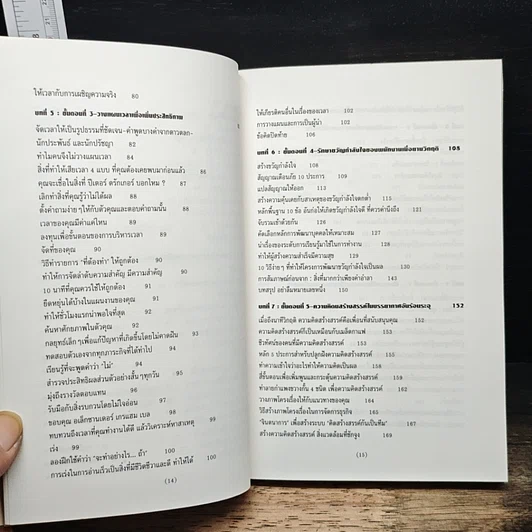 ให้เวลากับการเผชิญความจริง 80
บทที่ 5 : ขั้นตอนที่ 3-วางแผนเวลาเพื่อเพิ่มประสิทธิภาพ
จัดเวลาให้เป็นรูปธรรมที่ชัดเจน-คำพูดบางคำจากดาวตลก-
นักประพันธ์ และนักปรัชญา 82
ทำไมคนจึงไม่วางแผนเวลา 84
สิ่งที่ทำให้เสียเวลา 4 แบบ ที่คุณต้องเคยพบมาก่อนแล้ว 86
คุณจะเชื่อในสิ่งที่ ปีเตอร์ ดรักเกอร์ บอกไหม ? 87
เลิกทำสิ่งที่คุณรู้ว่าไม่ได้ผล 88
ตั้งคำถามง่ายๆให้กับตัวคุณและตอบคำถามนั้น 88
เวลาของคุณมีค่าแค่ไหน 89
ลงทุนเพื่อขั้นตอนของการบริหารเวลา 89
จัดที่ของคุณ 90
วิธีทำรายการ "ที่ต้องทำ" ให้ถูกต้อง 90
ทำให้การจัดลำดับความสำคัญ มีความสำคัญ 90
10 นาทีที่คุณควรไว้ให้ถูกต้อง 91
ยืดหยุ่นได้บ้างในแผนงานของคุณ 91
ทำให้ชั่วโมงแรกน่าพอใจที่สุด 92
ค้นหาศักยภาพในตัวคุณ 92
กลยุทธ์เล็กๆเพื่อแก้ปัญหาที่เกิดขึ้นโดยไม่คาดฝัน 93
ทดสอบตัวเองจากทุกภาระกิจที่ได้ทำไป 94
เรียนรู้ที่จะพูดคำว่า "ไม่" 94
สำรวจประสิทธิผลส่วนตัวอย่างสั้นๆทุกวัน 94
มุ่งถึงรางวัลตอบแทน 96
รับมือกับสิ่งรบกวนโดยไม่ใจอ่อน 96
ขอบคุณ อเล็กซานเดอร์ เกรแฮม เบล 98
ทบทวนถึงเวลาที่คุณทำงานได้ดี แล้ววิเคราะห์หาสาเหตุ 98
เร่ง 99
ลองฝึกใช้คำว่า "จะทำอย่างไร... ถ้า" 100
การเร่งในการอ่านเร็วเป็นสิ่งที่มีชีวิตชีวาและดี ทำให้ได้ 100
(14)
ให้เกียรติคนอื่นในเรื่องของเวลา 102
การวางแผนและการเป็นผู้นำ 102
ข้อคิดปิดท้าย 102
บทที่ 6 : ขั้นตอนที่ 4-รักษาขวัญกำลังใจของพนักงานเมื่อยามวิกฤติ 108
สร้างขวัญกำลังใจ 109
สัญญาณเตือนภัย 10 ประการ 109
แปลสัญญาณให้ออก 113
สร้างความคุ้นเคยกับสาเหตุของขวัญกำลังใจตกต่ำ
หลักพื้นฐาน 10 ข้อ อันก่อให้เกิดขวัญกำลังใจดี ที่ควรคำนึงถึง
จับรวมเข้าด้วยกัน
คัดเลือกหลักการพัฒนาบุคคลให้เหมาะสม
นำเรื่องของระดับการเรียนรู้มาใช้ในการทำงาน
ทำให้ผู้สร้างความสำเร็จมีความสุข
10 วิธีง่ายๆ ที่ทำให้โครงการพัฒนาขวัญกำลังใจเป็นผล
การสัมภาษณ์ก่อนจาก : สิ่งที่มากกว่าเพียงคำอำลา
บทสรุป อย่าลืมหมายเลขหนึ่ง
บทที่ 7 : ขั้นตอนที่ 5-ความคิดสร้างสรรค์ในบรรยากาศอันร้อนระอุ 152
เมื่อถึงนาทีวิกฤติ ความคิดสร้างสรรค์คือเพื่อนที่สนับสนุนคุณ
ความคิดสร้างสรรค์ก็เป็นเหมือนกับเมล็ดกาแฟ
ชีวทัศน์ของคนที่มีความคิดสร้างสรรค์
หลัก 5 ประการสำหรับปลูกฝังความคิดสร้างสรรค์
ทำความเข้าใจว่าอะไรที่ทำให้ความคิดเป็นผล
สี่ขั้นตอนเพื่อเพิ่มพูนและกระตุ้นความคิดสร้างสรรค์
ทำลายกำแพงขวางกั้น 4 ชนิด เพื่อความคิดสร้างสรรค์
วางภาพโครงเรื่องให้กับแนวทางของคุณ
วิธีสร้างภาพโครงเรื่องในการจัดการธุรกิจ
"จินตนาการ" เพื่อสร้างระบบ "คิดสร้างสรรค์กันเป็นทีม"
สร้างความคิดสร้างสรรค์ สิ่งแวดล้อมที่ชักจูง 169
(15)